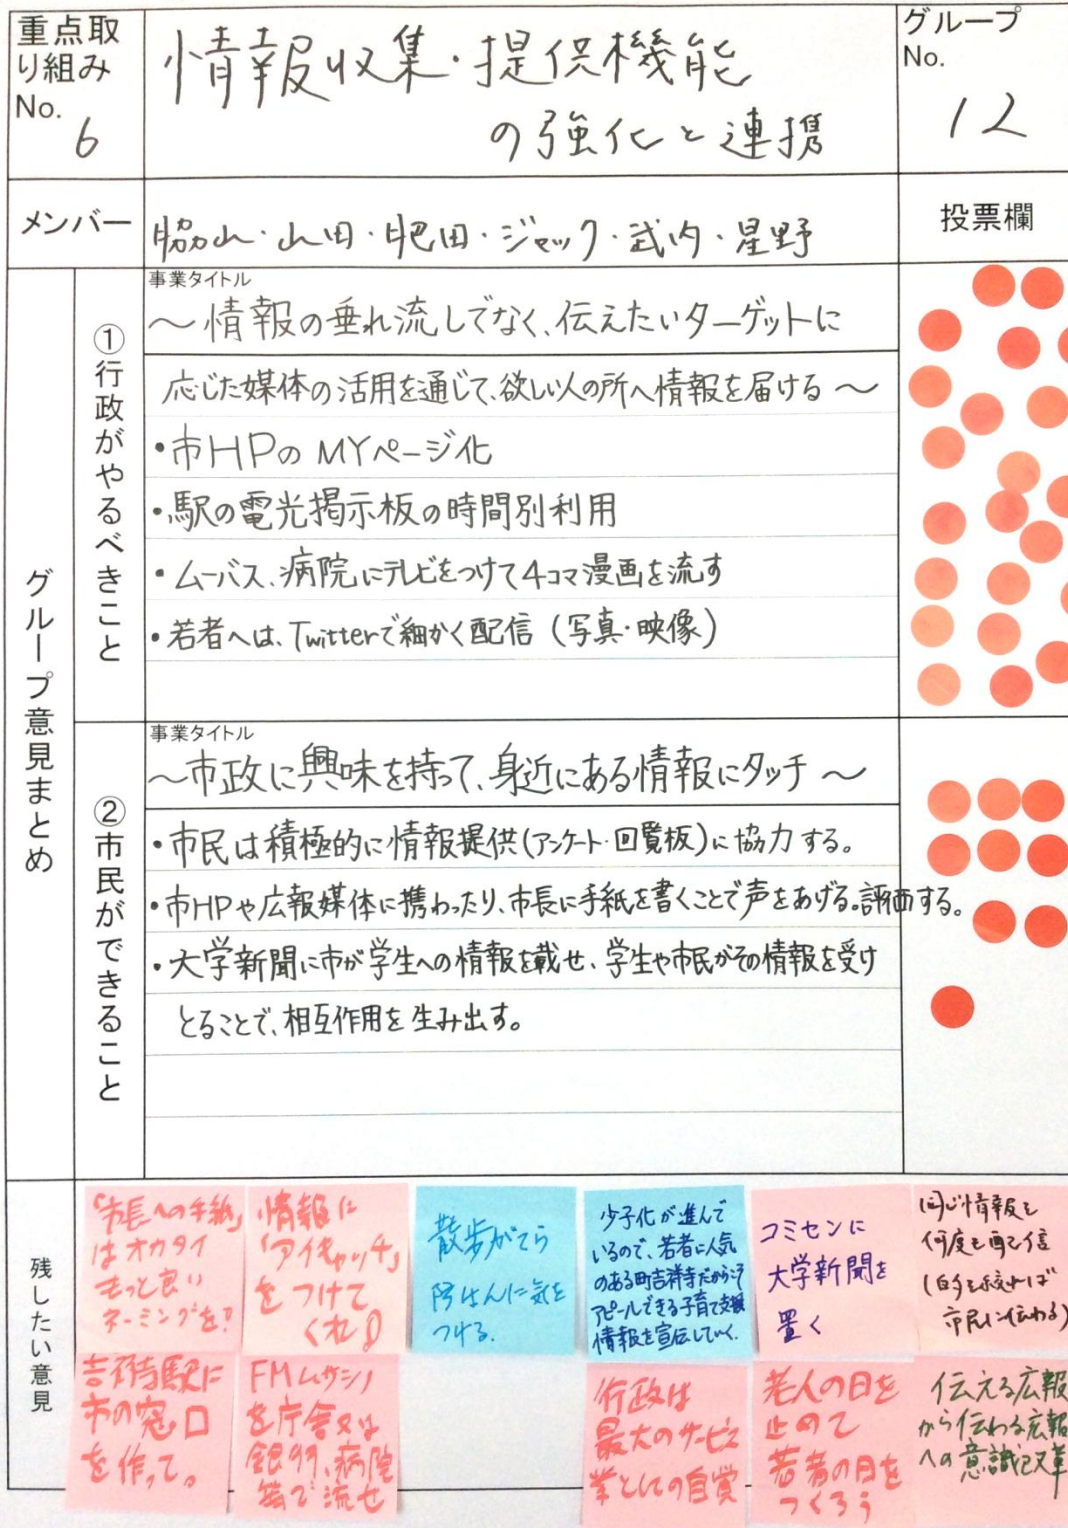 重点取
り組み
No.
6
情報収集・提供機能
の強化と連携
グループ
No.
12
メンバー
脇山・山田・肥田・ジャック・武内・星野
投票欄
グループ意見まとめ
①行政がやるべきこと
事業タイトル
～情報の垂れ流しでなく、伝えたいターゲットに
応じた媒体の活用を通じて、欲しい人の所へ情報を届ける～
・市HPのMYページ化
・駅の電光掲示板の時間別利用
・ムーバス、病院にテレビをつけて4コマ漫画を流す
・若者へは、Twitterで細かく配信（写真・映像）
②市民ができること
事業タイトル
～市政に興味を持って、身近にある情報にタッチ～
・市民は積極的に情報提供(アンケート・回覧板)に協力する。
・市HPや広報媒体に携わったり、市長に手紙を書くことで声をあげる。評価する。
・大学新聞に市が学生への情報を載せ、学生や市民がその情報を受け
とることで、相互作用を生み出す。
残したい意見
「市長への手紙」
はオカタイ
もっと良い
ネーミングを?
情報に
「アイキャッチ」
をつけて
くれ!
散歩がてら
防はんに気を
つける.
少子化が進んで
いるので、若者に人気
のある町吉祥寺だからこそ
アピールできる子育て支援
情報を宣伝していく.
コミセンに
大学新聞を
置く
同じ情報を
何度も配信
市民に伝わる)
吉祥寺駅に
市の窓口
を作って。
FMムサシノ
を庁舎又は
銀行、病院
等で流せ
行政は
最大のサービス
業としての自覚
老人の日を
止めて
若者の日を
つくろう
伝える広報
から伝わる広報
への意識改革